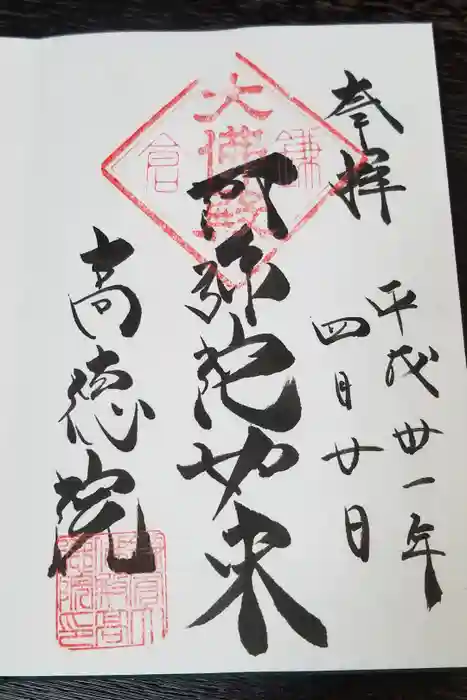 奉拝
平成卅一年
四月廿日
阿弥陀如来
高徳院
大佛殿
鎌倉